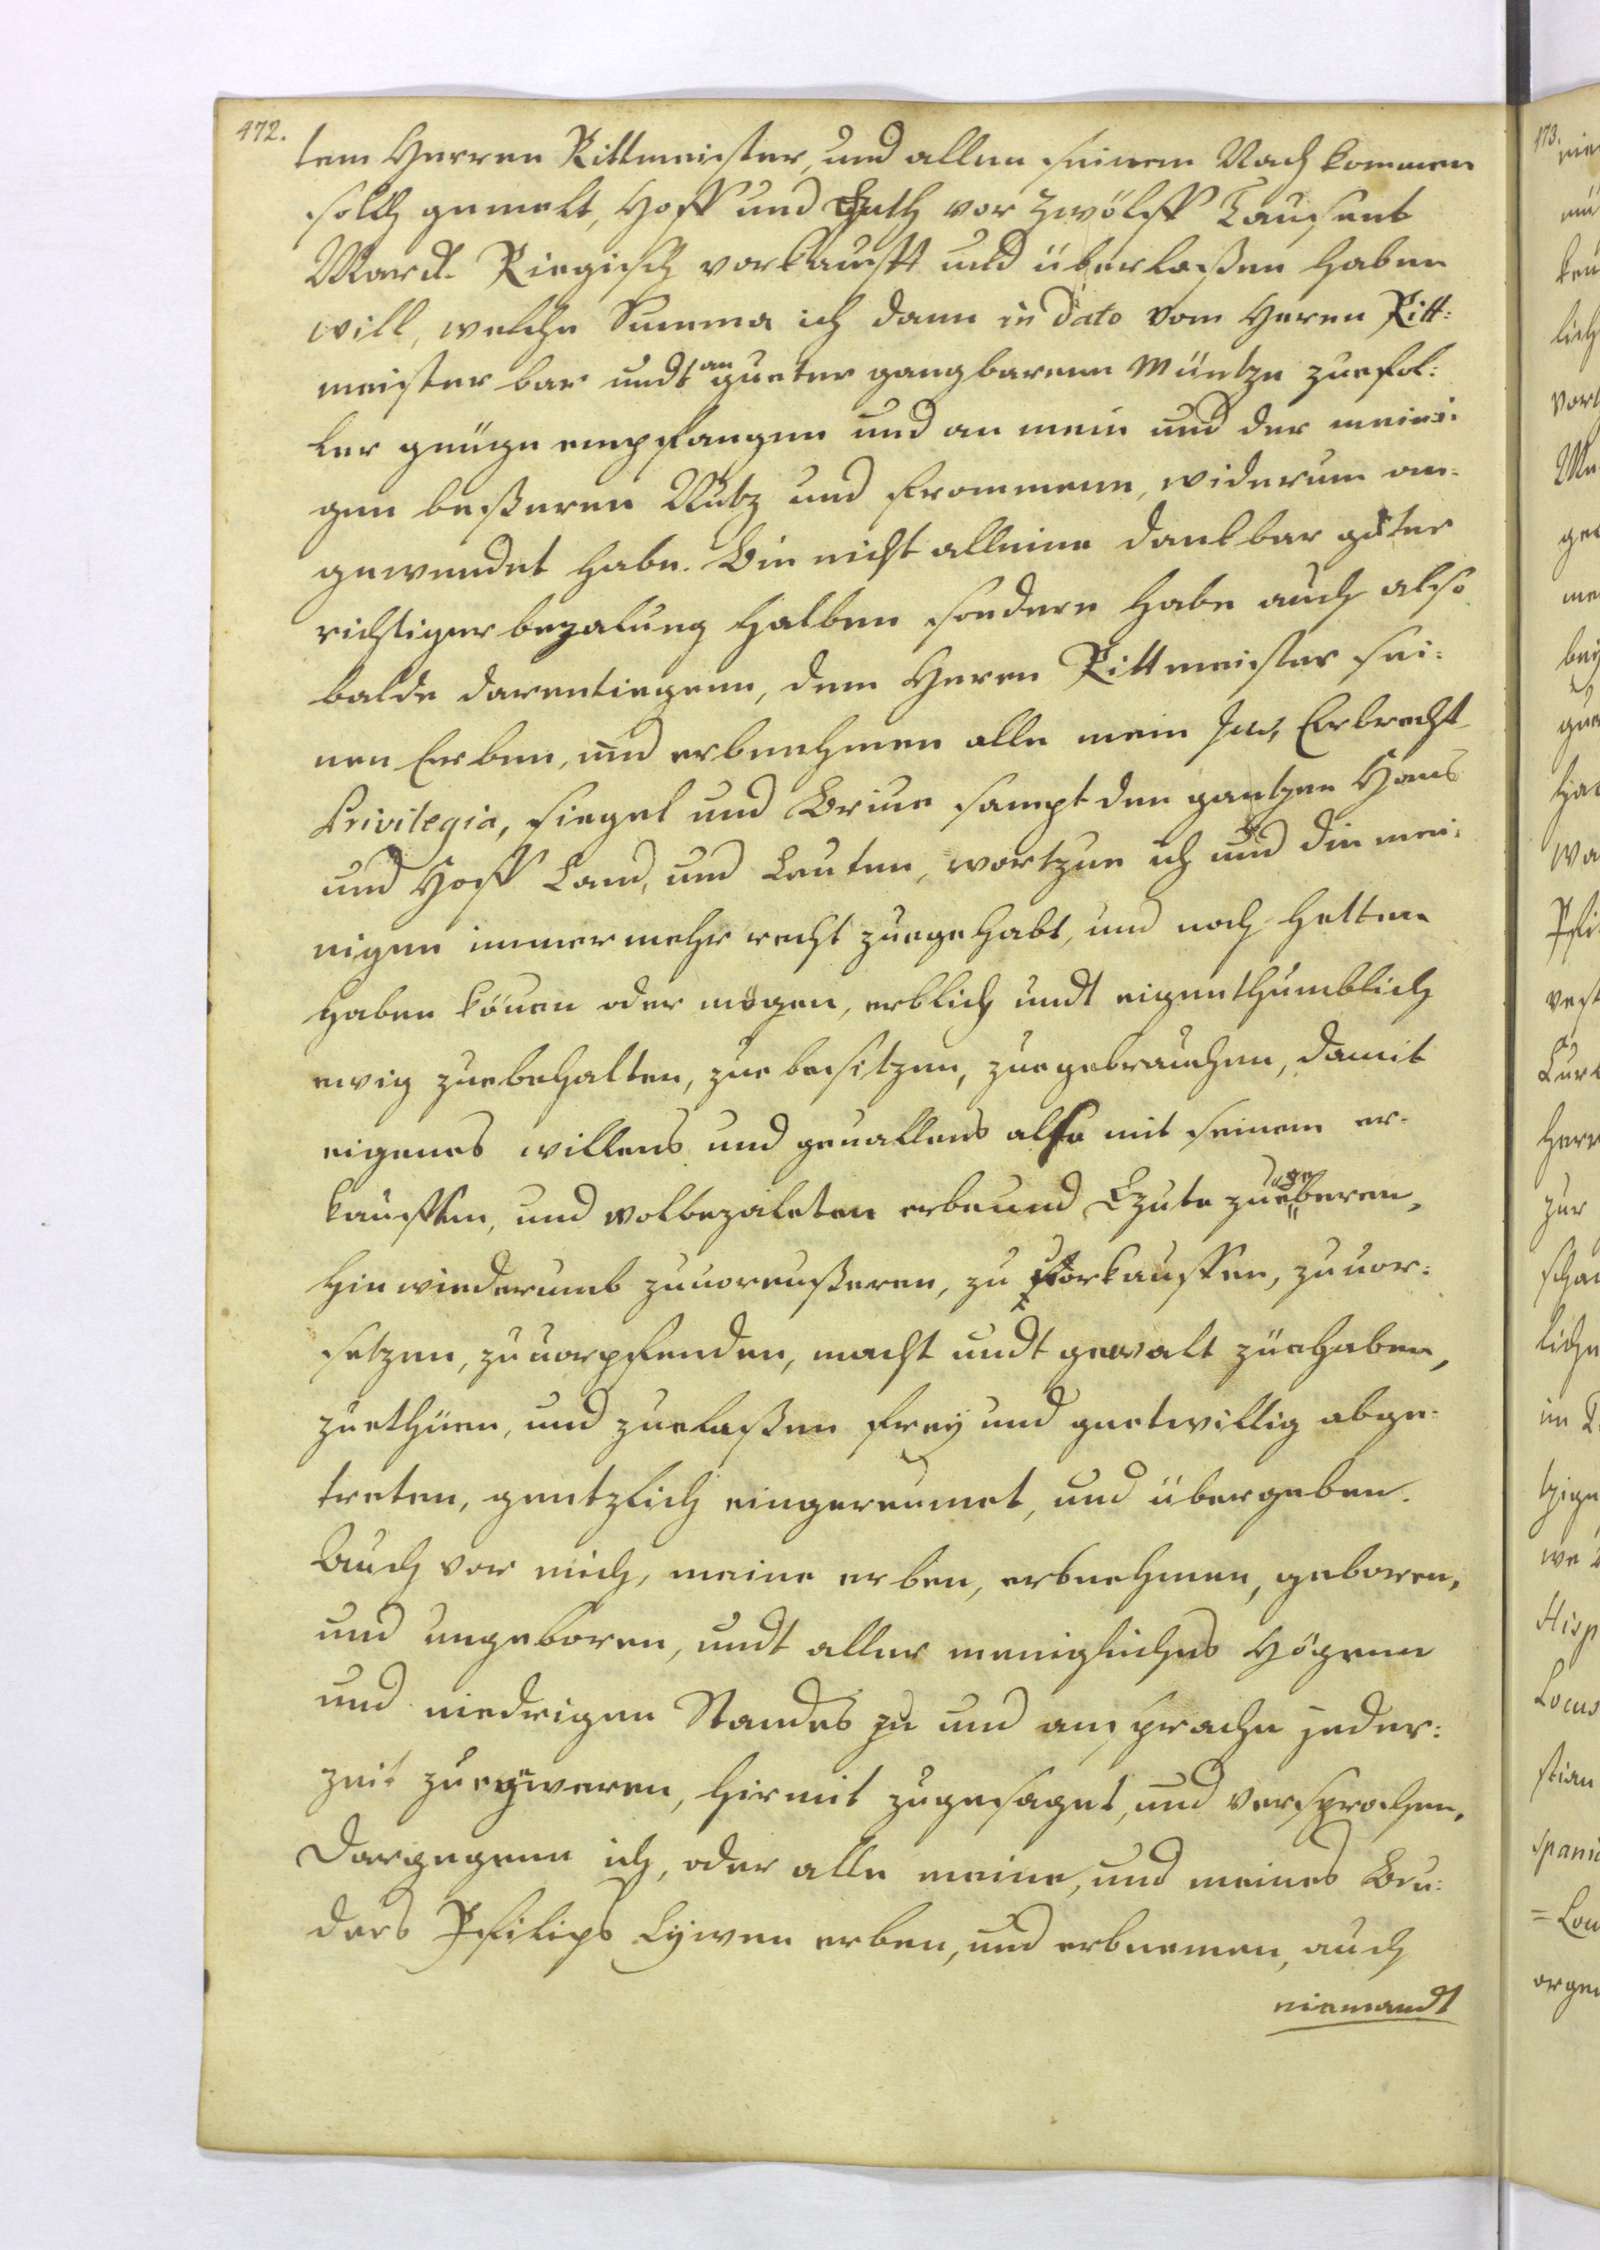 472.
tem Herren Rittmeister, und allen seinem Nach kommen
solch gemelt, Hoff und Guth vor Zwölff Tausent
Marck Riegisch vorkaufft und überlaßen haben
will, welche Summa ich dann in dato vom Herren Ritt:
meister bar undt an gueter gangbarenn Müntze zuefol:
ler genüge empfangen und an mein und der meini:
gen beßeren Nutz und frommenn, widerum an-
gewendet habe. Bin nicht alleine danckbar guter
richtiger bezalung halben sondern habe auch also
balde darentiegenn, dem Herren Rittmeister sei:
nen Erben, und erbnehmen alle mein Jus, Erbrecht
Privilegia, siegel und Brieue sampt den gantzen Haus
und Hoff Land, und Leuten, wortzue ich und die mei:
nigen immermehr recht zuegehabt, und noch hetten
haben können oder mögen, erblich undt eigenthümblich
ewig zuebehalten, zue besitzen, zuegebrauchen, damit
eigenes willens und geuallens also mit seinem er-
kaufften, und wolbezaleten erbe und gute zuegeberen,
hin wiederumb zuuoreußeren, zu vorkauffen, zuuor:
setzen, zuuorpfenden, macht undt gewalt züehaben,
züethüen, und zuelaßen frey und guetwillig abge-
treten, gentzlich eingereumet, und übergeben.
Auch vor mich, meine erben, erbnehmen, geboren,
und ungeboren, undt aller menigliches Högenn
und niedrigen Standes zu und ansprache jeder:
zeit zuegeweren, hirmit zugesaget, und versprochen,
Dargegenn ich, oder alle meine, und meines Bru:
ders Philips Lywen erben, und erbnemen, auch
niemandt